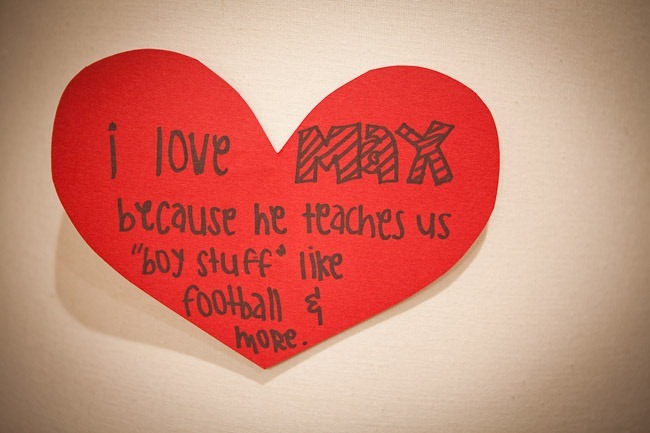 i love Max
because he teaches us
"boy stuff" like
football &
more.